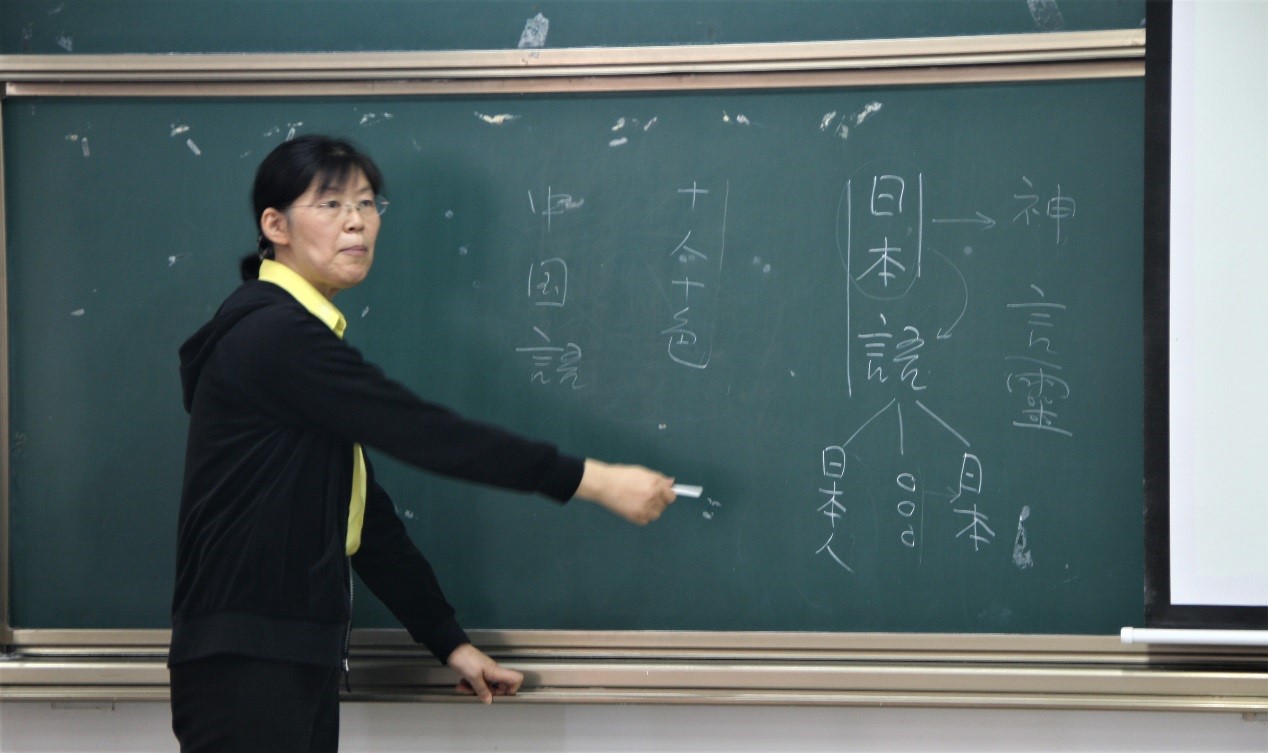 神
言靈
日本語
日本
○○○
日本人
十人十色
中国語